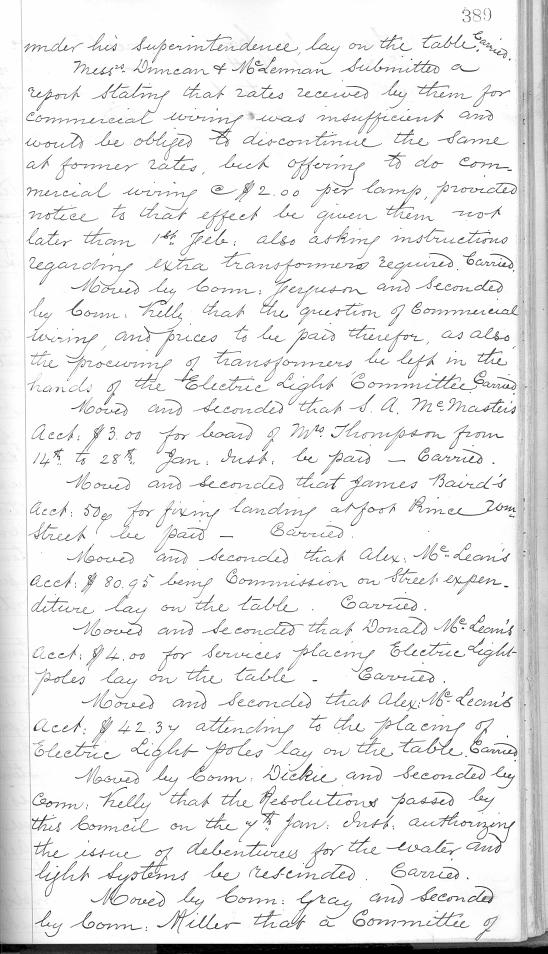 389
under his Superintendence, lay on the table. Carried.
Messrs. Duncan & McLennan Submitted a
report Stating that rates received by them for
commercial wiring was insufficient and
would be obliged to discontinue the same
at former rates, but offering to do com-
mercial wiring @ $2.00 per lamp, provided
notice to that effect be given them not
later than 1st Feb: also asking instructions
regarding extra transformers required. Carried.
Moved by Coun: Ferguson and Seconded
by Coun: Kelly that the question of Commercial
wiring, and prices to be paid therefor, as also,
the procuring of transformers be left in the
hands of the Electric Light Committee. Carried
Moved and Seconded that S. A. McMasters
Acct: $3.00 for board of Mrs Thompson from
14th to 28th Jan: Inst: be paid — Carried.
Moved and Seconded that James Baird's
Acct: 50¢ for fixing landing at foot Prince Wm
Street be paid — Carried.
Moved and Seconded that Alex: McLean's
Acct: $80.95 being Commission on Street expen-
diture lay on the table. Carried.
Moved and Seconded that Donald McLean's
Acct: $4.00 for Services placing Electric Light
Poles lay on the table - Carried.
Moved and Seconded that Alex: McLean's
Acct: $42.37 attending to the placing of
Electric Light Poles lay on the table. Carried
Moved by Coun: Dickie and Seconded by
Coun: Kelly that the Resolutions passed by
this Council on the 7th Jan: Inst: authorizing
the issue of debentures for the water and
light Systems be rescinded. Carried.
Moved by Coun: Gray and Seconded
by Coun: Miller that a Committee of